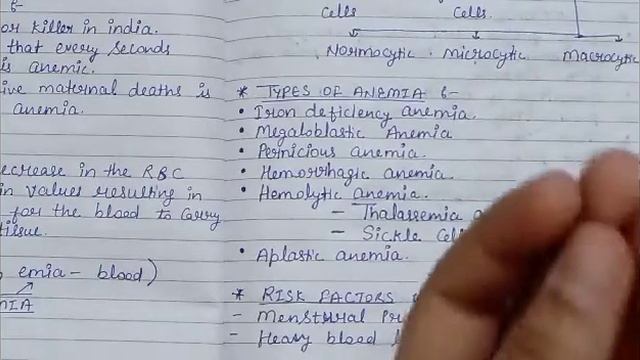 or killer in india.
that every seconds
is anemic.
ive maternal deaths is
anemia.
ecrease in the RBC
in values resulting in
for the blood to carry
tissue.
emia - blood)
MIA
Cells Cells.
Normocytic . Microcytic. Macrocytic
* TYPES OF ANEMIA :-
• Iron deficiency anemia.
• Megaloblastic Anemia
• Pernicious anemia.
• Hemorrhagic anemia.
• Hemolytic anemia.
- Thalassemia
- Sickle Cell
• Aplastic anemia.
* RISK FACTORS
- Menstural
- Heavy blood